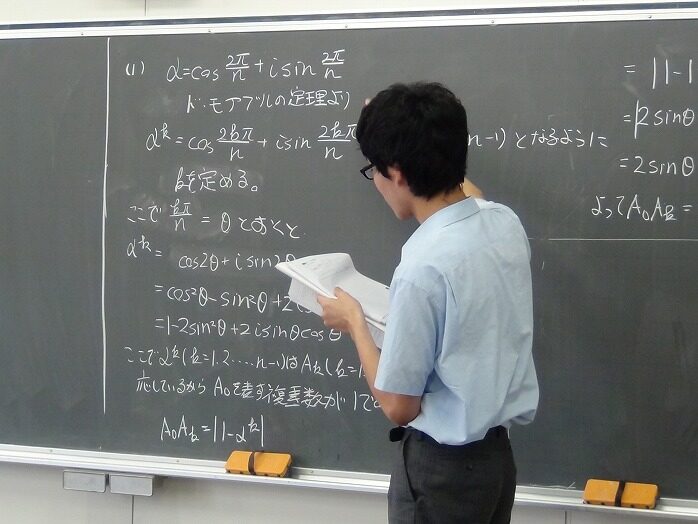 (1) α=cos 2π/n + i sin 2π/n
ド・モアブルの定理より
α^k = cos 2kπ/n + i sin 2kπ/n
n-1) となるように
kを定める。
ここで kπ/n = θ とおくと
α^k = cos2θ + i sin2θ
= cos²θ - sin²θ + 2
= 1-2sin²θ + 2 i sinθ cosθ
ここで α^k (k=1,2,…,n-1) は A_k (k=1
応しているから A₀を表す複素数が1で
A₀A_k = |1-α^k|
= |1-1
= |2sinθ
= 2sinθ
よって A₀A_k =